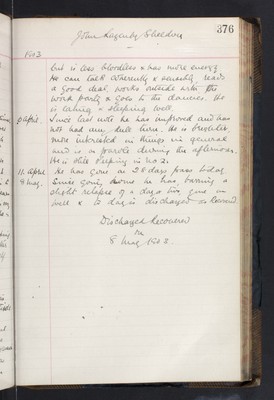 376
John Lazenby Sheldon
1903
but is less bloodless & has more energy
He can talk coherently & sensibly, reads
a good deal, works outside with the
work party & goes to the dances. He
is eating & sleeping well.
9 April. Since last note he has improved and has
not had any dull turn. He is brighter
more interested in things in general
and is on parole during the afternoon.
He is still sleeping in no 2.
11 April He has gone on 28 days from today
8 May. Since going home he has barring a
slight relapse of a day or two gone on
well & to day is discharged as Recovered
Discharged Recovered
on
8 May 1903.